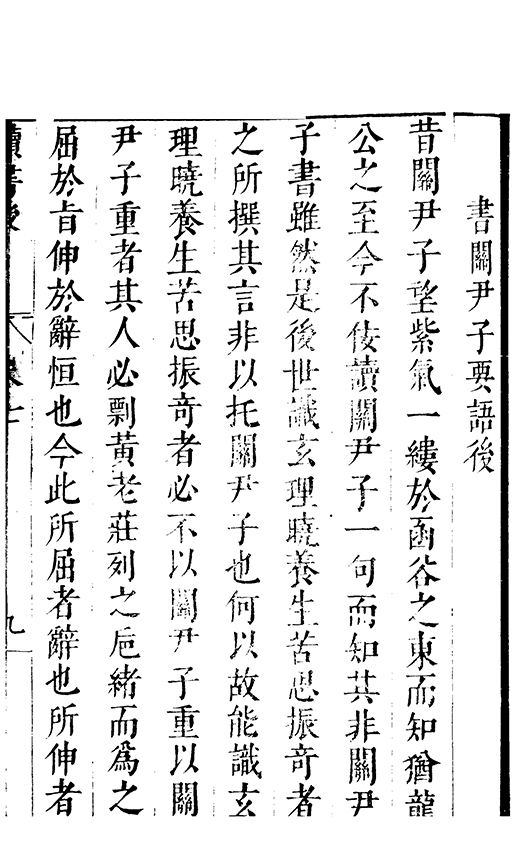 書關尹子要語後
昔關尹子望紫氣一縷於函谷之東而知猶龍
公之至今不佞讀關尹子一句而知其非關尹
子書雖然是後世識玄理曉養生苦思振奇者
之所撰其言非以托關尹子也何以故能識玄
理曉養生苦思振奇者必不以關尹子重以關
尹子重者其人必剽黃老莊列之巵緒而爲之
屈於㫖伸於辭恒也今此所屈者辭也所伸者
讀書後
九